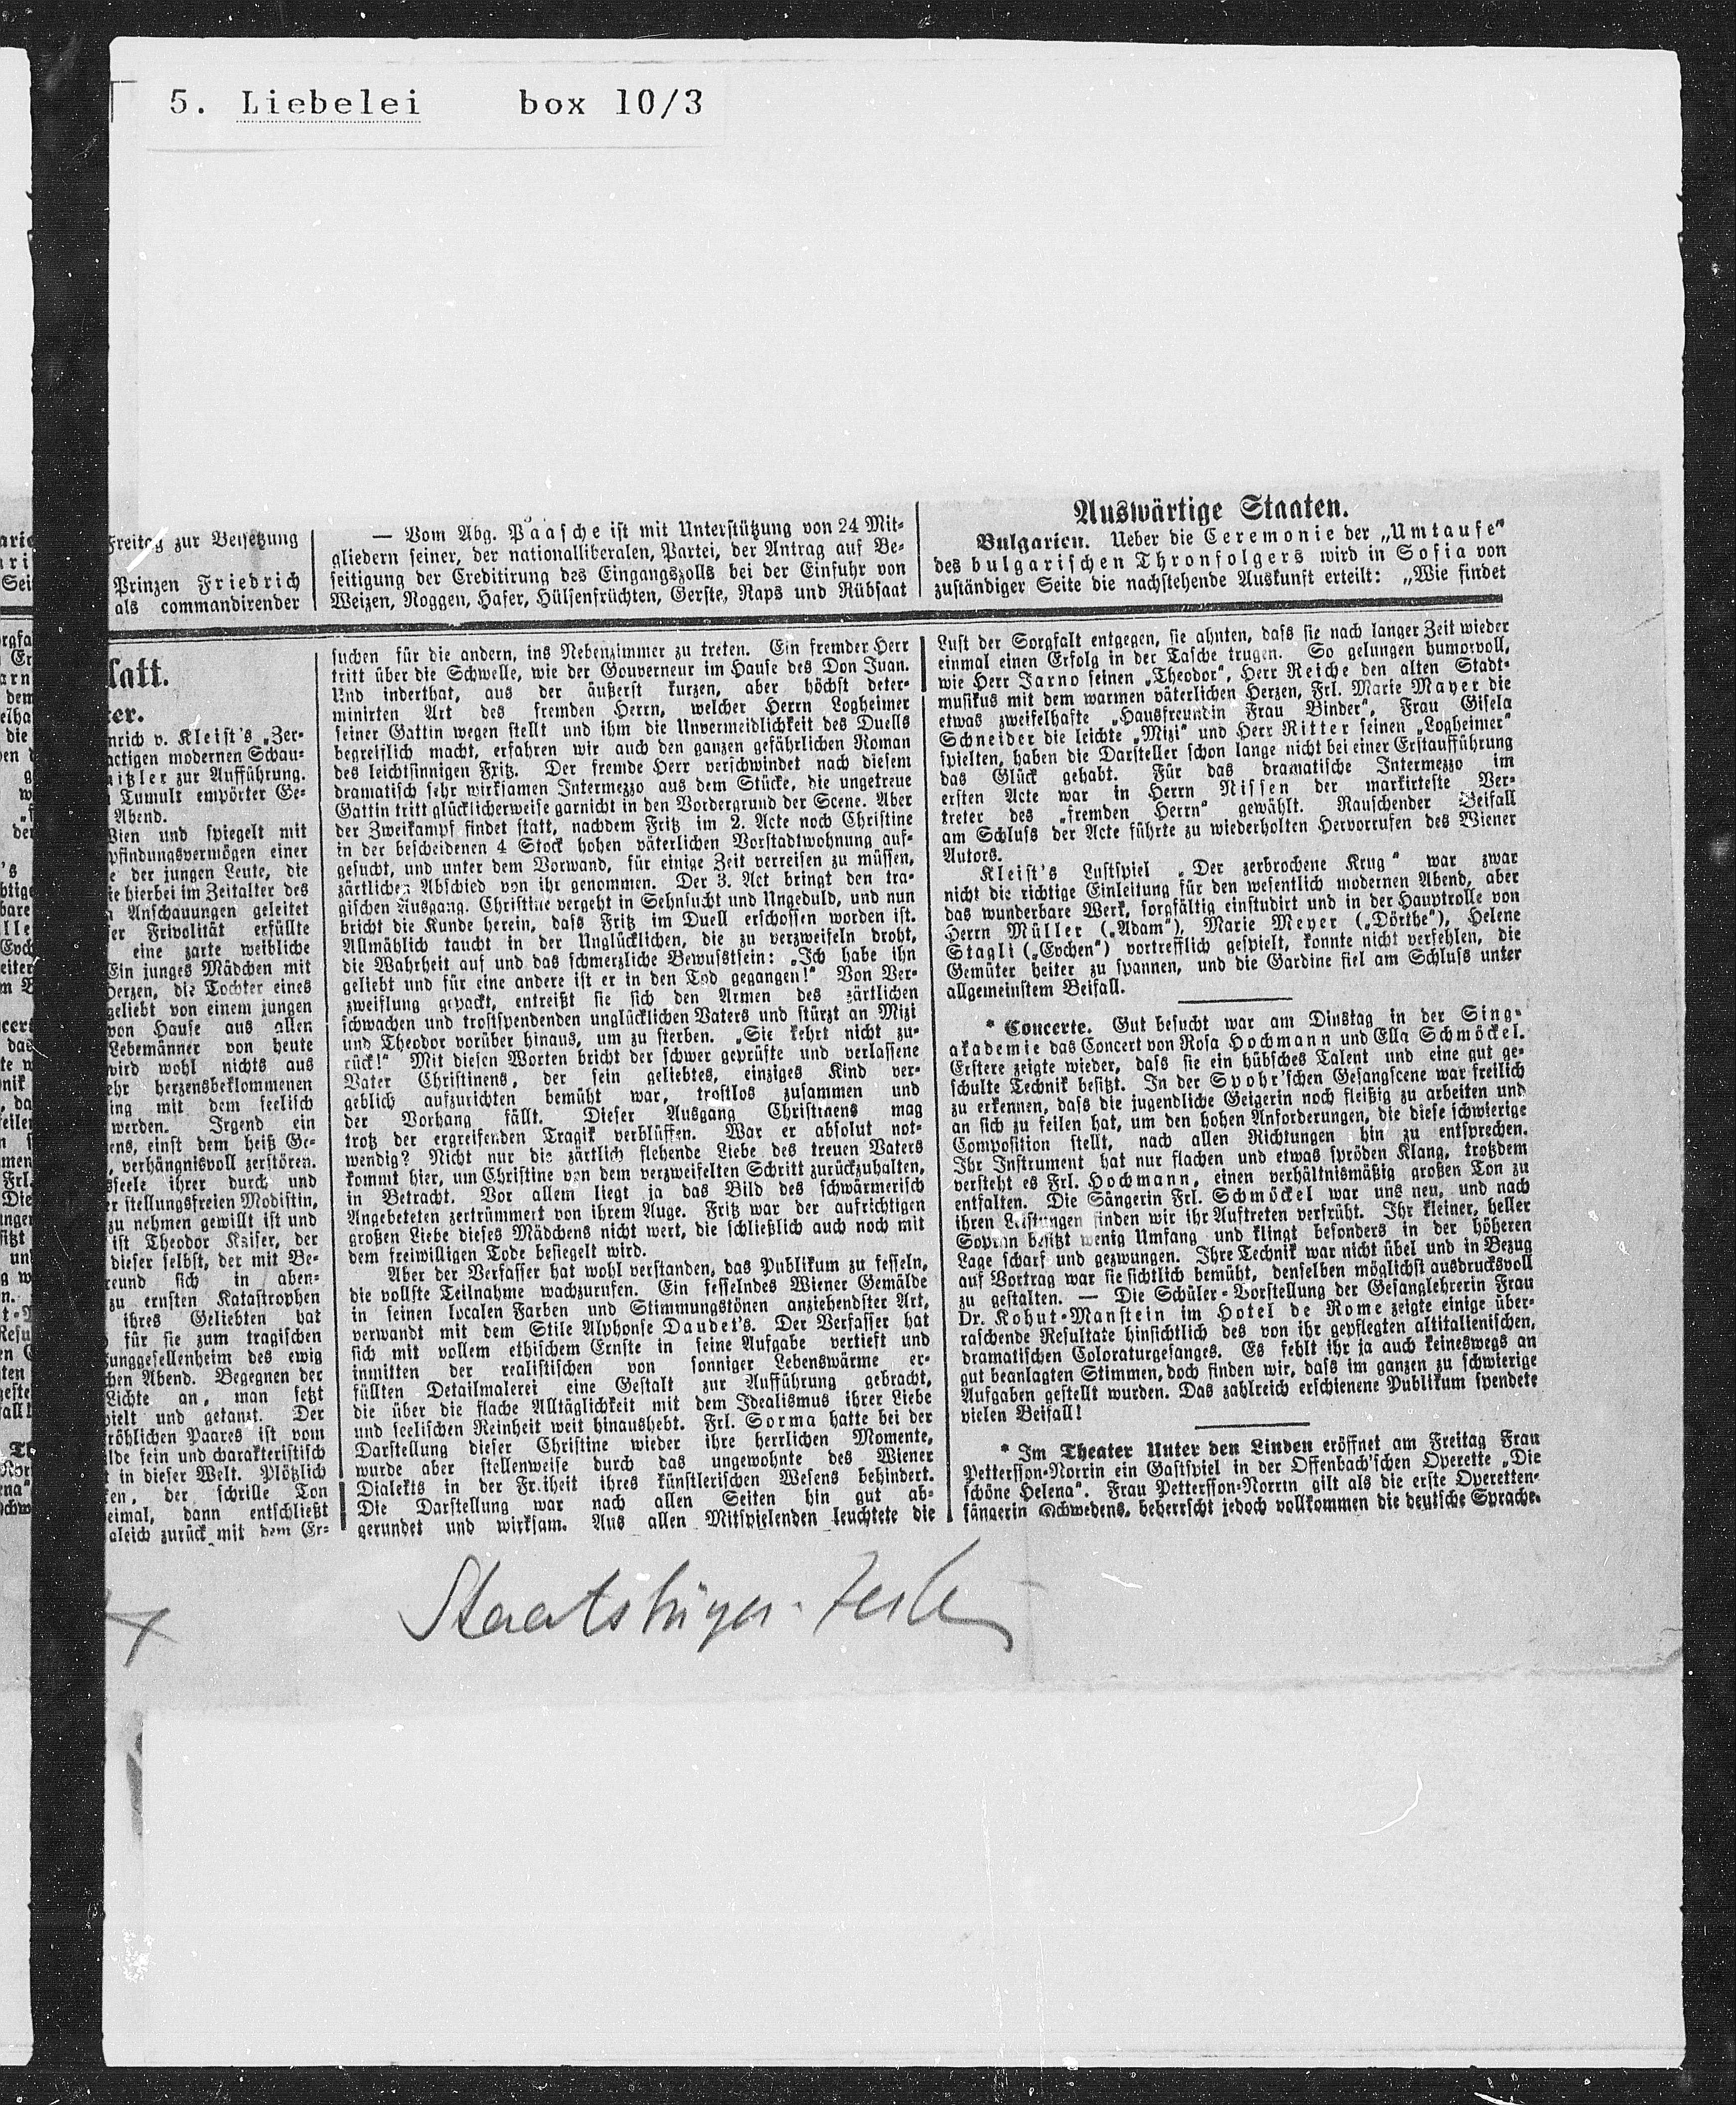 5. Liebelei box 10/3
Freitag zur Beisetzung
Prinzen Friedrich
als commandirender
— Vom Abg. Paasche ist mit Unterstützung von 24 Mit-
gliedern seiner, der nationalliberalen, Partei, der Antrag auf Be-
seitigung der Creditirung des Eingangszolls bei der Einfuhr von
Weizen, Roggen, Hafer, Hülsenfrüchten, Gerste, Raps und Rübsaat
Auswärtige Staaten.
Bulgarien. Ueber die Ceremonie der „Umtaufe“
des bulgarischen Thronfolgers wird in Sofia von
zuständiger Seite die nachstehende Auskunft erteilt: „Wie findet
latt.
ter.
nrich v. Kleist's „Zer-
actigen modernen Schau-
nitzler zur Aufführung.
Tumult empörter Ge-
Abend.
Wien und spiegelt mit
pfindungsvermögen einer
e der jungen Leute, die
ie hierbei im Zeitalter des
Anschauungen geleitet
er Frivolität erfüllte
eine zarte weibliche
Ein junges Mädchen mit
Herzen, die Tochter eines
geliebt von einem jungen
von Hause aus allen
Lebemänner von heute
wird wohl nichts aus
ehr herzensbeklommenen
ing mit dem seelisch
werden. Irgend ein
ens, einst dem heiß Ge-
, verhängnisvoll zerstören.
seele ihrer durch und
er stellungsfreien Modistin,
zu nehmen gewillt ist und
ist Theodor Kaiser, der
dieser selbst, der mit Be-
reund sich in aben-
zu ernsten Katastrophen
ihres Geliebten hat
für sie zum tragischen
Junggesellenheim des ewig
chen Abend. Begegnen der
Lichte an, man setzt
pielt und getanzt. Der
fröhlichen Paares ist vom
lde fein und charakteristisch
t in dieser Welt. Plötzlich
ken, der schrille Ton
eimal, dann entschließt
gleich zurück mit dem Er-
suchen für die andern, ins Nebenzimmer zu treten. Ein fremder Herr
tritt über die Schwelle, wie der Gouverneur im Hause des Don Juan.
Und inderthat, aus der äußerst kurzen, aber höchst deter-
minirten Art des fremden Herrn, welcher Herrn Logheimer
seiner Gattin wegen stellt und ihm die Unvermeidlichkeit des Duells
begreiflich macht, erfahren wir auch den ganzen gefährlichen Roman
des leichtsinnigen Fritz. Der fremde Herr verschwindet nach diesem
dramatisch sehr wirksamen Intermezzo aus dem Stücke, die ungetreue
Gattin tritt glücklicherweise garnicht in den Vordergrund der Scene. Aber
der Zweikampf findet statt, nachdem Fritz im 2. Acte noch Christine
in der bescheidenen 4 Stock hohen väterlichen Vorstadtwohnung auf-
gesucht, und unter dem Vorwand, für einige Zeit verreisen zu müssen,
zärtlichen Abschied von ihr genommen. Der 3. Act bringt den tra-
gischen Ausgang. Christine vergeht in Sehnsucht und Ungeduld, und nun
bricht die Kunde herein, dass Fritz im Duell erschossen worden ist.
Allmählich taucht in der Unglücklichen, die zu verzweifeln droht,
die Wahrheit auf und das schmerzliche Bewusstsein: „Ich habe ihn
geliebt und für eine andere ist er in den Tod gegangen!“ Von Ver-
zweiflung gepackt, entreißt sie sich den Armen des zärtlichen
schwachen und trostspendenden unglücklichen Vaters und stürzt an Mizi
und Theodor vorüber hinaus, um zu sterben. „Sie kehrt nicht zu-
rück!“ Mit diesen Worten bricht der schwer geprüfte und verlassene
Vater Christinens, der sein geliebtes, einziges Kind ver-
geblich aufzurichten bemüht war, trostlos zusammen und
der Vorhang fällt. Dieser Ausgang Christinens mag
trotz der ergreifenden Tragik verblüffen. War er absolut not-
wendig? Nicht nur die zärtlich flehende Liebe des treuen Vaters
kommt hier, um Christine von dem verzweifelten Schritt zurückzuhalten,
in Betracht. Vor allem liegt ja das Bild des schwärmerisch
Angebeteten zertrümmert von ihrem Auge. Fritz war der aufrichtigen
großen Liebe dieses Mädchens nicht wert, die schließlich auch noch mit
dem freiwilligen Tode besiegelt wird.
Aber der Verfasser hat wohl verstanden, das Publikum zu fesseln,
die vollste Teilnahme wachzurufen. Ein fesselndes Wiener Gemälde
in seinen localen Farben und Stimmungstönen anziehendster Art,
verwandt mit dem Stile Alphonse Daudet's. Der Verfasser hat
sich mit vollem ethischem Ernste in seine Aufgabe vertieft und
inmitten der realistischen von sonniger Lebenswärme er-
füllten Detailmalerei eine Gestalt zur Aufführung gebracht,
die über die flache Alltäglichkeit mit dem Idealismus ihrer Liebe
und seelischen Reinheit weit hinaushebt. Frl. Sorma hatte bei der
Darstellung dieser Christine wieder ihre herrlichen Momente,
wurde aber stellenweise durch das ungewohnte des Wiener
Dialekts in der Freiheit ihres künstlerischen Wesens behindert.
Die Darstellung war nach allen Seiten hin gut ab-
gerundet und wirksam. Aus allen Mitspielenden leuchtete die
Lust der Sorgfalt entgegen, sie ahnten, dass sie nach langer Zeit wieder
einmal einen Erfolg in der Tasche trugen. So gelungen humorvoll,
wie Herr Jarno seinen „Theodor“, Herr Reiche den alten Stadt-
musikus mit dem warmen väterlichen Herzen, Frl. Marie Mayer die
etwas zweifelhafte „Hausfreundin Frau Binder“, Frau Gisela
Schneider die leichte „Mizi“ und Herr Ritter seinen „Logheimer“
spielten, haben die Darsteller schon lange nicht bei einer Erstaufführung
das Glück gehabt. Für das dramatische Intermezzo im
ersten Acte war in Herrn Nissen der markirteste Ver-
treter des „fremden Herrn“ gewählt. Rauschender Beifall
am Schluss der Acte führte zu wiederholten Hervorrufen des Wiener
Autors.
Kleist's Lustspiel „Der zerbrochene Krug“ war zwar
nicht die richtige Einleitung für den wesentlich modernen Abend, aber
das wunderbare Werk, sorgfältig einstudirt und in der Hauptrolle von
Herrn Müller („Adam“), Marie Meyer („Dörthe“), Helene
Stagli („Evchen“) vortrefflich gespielt, konnte nicht verfehlen, die
Gemüter heiter zu spannen, und die Gardine fiel am Schluss unter
allgemeinstem Beifall.
* Concerte. Gut besucht war am Dinstag in der Sing-
akademie das Concert von Rosa Hochmann und Ella Schmöckel.
Erstere zeigte wieder, dass sie ein hübsches Talent und eine gut ge-
schulte Technik besitzt. In der Spohr'schen Gesangscene war freilich
zu erkennen, dass die jugendliche Geigerin noch fleißig zu arbeiten und
an sich zu feilen hat, um den hohen Anforderungen, die diese schwierige
Composition stellt, nach allen Richtungen hin zu entsprechen.
Ihr Instrument hat nur flachen und etwas spröden Klang, trotzdem
versteht es Frl. Hochmann, einen verhältnismäßig großen Ton zu
entfalten. Die Sängerin Frl. Schmöckel war uns neu, und nach
ihren Leistungen finden wir ihr Auftreten verfrüht. Ihr kleiner, heller
Sopran besitzt wenig Umfang und klingt besonders in der höheren
Lage scharf und gezwungen. Ihre Technik war nicht übel und in Bezug
auf Vortrag war sie sichtlich bemüht, denselben möglichst ausdrucksvoll
zu gestalten. — Die Schüler-Vorstellung der Gesanglehrerin Frau
Dr. Kohut-Manstein im Hotel de Rome zeigte einige über-
raschende Resultate hinsichtlich des von ihr gepflegten altitalienischen,
dramatischen Coloraturgesanges. Es fehlt ihr ja auch keineswegs an
gut beanlagten Stimmen, doch finden wir, dass im ganzen zu schwierige
Aufgaben gestellt wurden. Das zahlreich erschienene Publikum spendete
vielen Beifall!
* Im Theater Unter den Linden eröffnet am Freitag Frau
Pettersson-Norrin ein Gastspiel in der Offenbach'schen Operette „Die
schöne Helena“. Frau Pettersson-Norrin gilt als die erste Operetten-
sängerin Schwedens, beherrscht jedoch vollkommen die deutsche Sprache.
Staatsbürger-